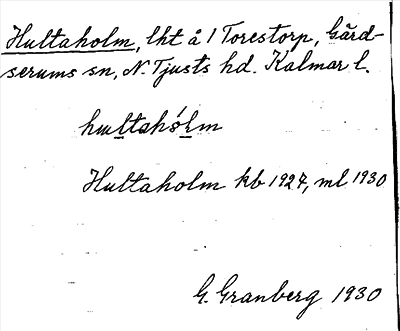 Hultaholm, lht å 1 Torestorp, Gård-
serums sn, N. Tjusts hd. Kalmar l.
hultahólm
Hultaholm kb 1927, ml 1930
G. Granberg 1930